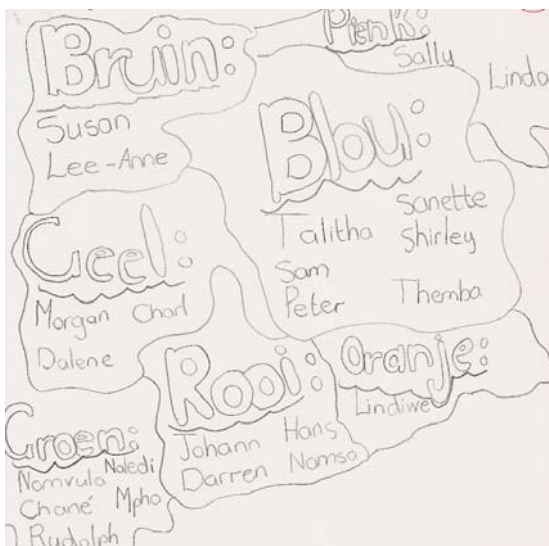 Bruin:
Susan
Lee-Anne
Pienk:
Sally
Linda
Blou:
Talitha Sanette
Shirley
Sam
Peter Themba
Geel:
Morgan Charl
Dalene
Rooi:
Johann Hans
Darren Nomsa
Oranje:
Lindiwe
Groen:
Nomvula Naledi
Chané Mpho
Rudolph